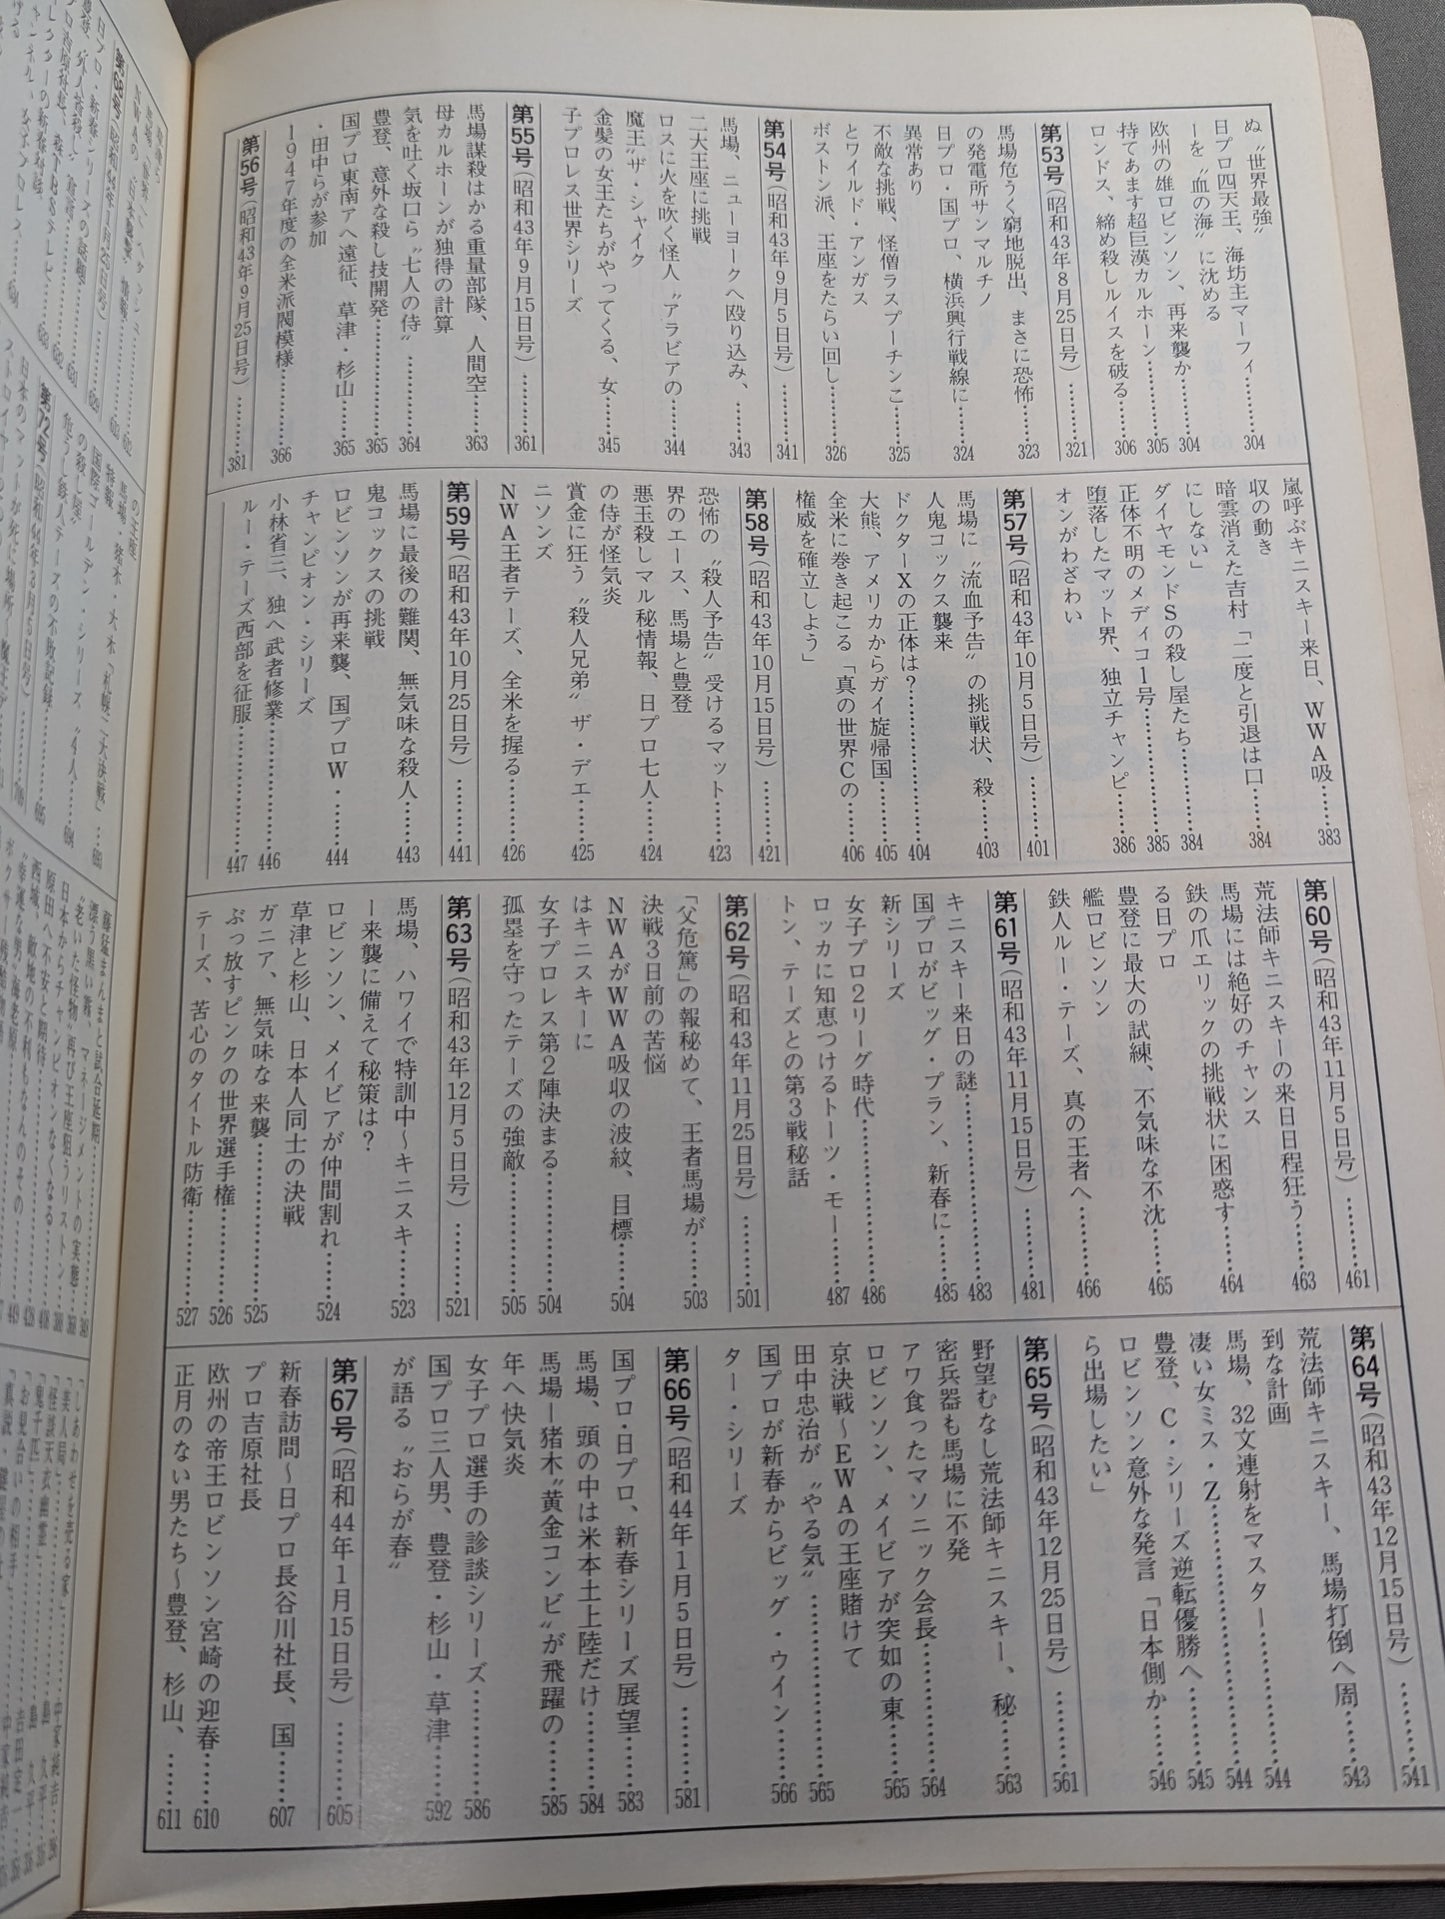 ぬ〝世界最強〟
日プロ四天王、海坊主マーフィ………304
ーを〝血の海〟に沈める
欧州の雄ロビンソン、再来襲か………304
持てあます超巨漢カルホーン………305
ロンドス、締め殺しルイスを破る……306
第53号(昭和43年8月25日号)………321
馬場危うく窮地脱出、まさに恐怖……323
の発電所サンマルチノ
日プロ・国プロ、横浜興行戦線に……324
異常あり
不敵な挑戦、怪僧ラスプーチンこ……325
とワイルド・アンガス
ボストン派、王座をたらい回し………326
第54号(昭和43年9月5日号)………341
馬場、ニューヨークへ殴り込み、……343
二大王座に挑戦
ロスに火を吹く怪人〝アラビアの……344
魔王〟ザ・シャイク
金髪の女王たちがやってくる、女……345
子プロレス世界シリーズ
第55号(昭和43年9月15日号)………361
馬場謀殺はかる重量部隊、人間空……363
母カルホーンが独得の計算
気を吐く坂口ら〝七人の侍〟…………364
豊登、意外な殺し技開発………………365
国プロ東南アへ遠征、草津・杉山……365
・田中らが参加
1947年度の全米派閥模様…………366
第56号(昭和43年9月25日号)………381
嵐呼ぶキニスキー来日、WWA吸……383
収の動き
暗雲消えた吉村「二度と引退は口……384
にしない」
ダイヤモンドSの殺し屋たち…………384
正体不明のメディコ1号………………385
堕落したマット界、独立チャンピ……386
オンがわざわい
第57号(昭和43年10月5日号)………401
馬場に〝流血予告〟の挑戦状、殺……403
人鬼コックス襲来
ドクターXの正体は?…………………404
大熊、アメリカからガイ旋帰国………405
全米に巻き起こる「真の世界Cの……406
権威を確立しよう」
第58号(昭和43年10月15日号)………421
恐怖の〝殺人予告〟受けるマット……423
界のエース、馬場と豊登
悪玉殺しマル秘情報、日プロ七人……424
の侍が怪気炎
賞金に狂う〝殺人兄弟〟ザ・デェ……425
ニソンズ
NWA王者テーズ、全米を握る………426
第59号(昭和43年10月25日号)………441
馬場に最後の難関、無気味な殺人……443
鬼コックスの挑戦
ロビンソンが再来襲、国プロW・……444
チャンピオン・シリーズ
小林省三、独へ武者修業………………446
ルー・テーズ西部を征服………………447
第60号(昭和43年11月5日号)………461
荒法師キニスキーの来日日程狂う……463
馬場には絶好のチャンス
鉄の爪エリックの挑戦状に困惑す……464
る日プロ
豊登に最大の試練、不気味な不沈……465
艦ロビンソン
鉄人ルー・テーズ、真の王者へ………466
第61号(昭和43年11月15日号)………481
キニスキー来日の謎……………………483
国プロがビッグ・プラン、新春に……485
新シリーズ
女子プロ2リーグ時代…………………486
ロッカに知恵つけるトーツ・モー……487
トン、テーズとの第3戦秘話
第62号(昭和43年11月25日号)………501
「父危篤」の報秘めて、王者馬場が…503
決戦3日前の苦悩
NWAがWWA吸収の波紋、目標……504
はキニスキーに
女子プロレス第2陣決まる……………504
孤塁を守ったテーズの強敵……………505
第63号(昭和43年12月5日号)………521
馬場、ハワイで特訓中~キニスキ……523
ー来襲に備えて秘策は?
ロビンソン、メイビアが仲間割れ……524
草津と杉山、日本人同士の決戦
ガニア、無気味な来襲…………………525
ぶっ放すピンクの世界選手権…………526
テーズ、苦心のタイトル防衛…………527
第64号(昭和43年12月15日号)………541
荒法師キニスキー、馬場打倒へ周……543
到な計画
馬場、32文連射をマスター……………544
凄い女ミス・Z…………………………544
豊登、C・シリーズ逆転優勝へ………545
ロビンソン意外な発言「日本側か……546
ら出場したい」
第65号(昭和43年12月25日号)………561
野望むなし荒法師キニスキー、秘……563
密兵器も馬場に不発
アワ食ったマソニック会長……………564
ロビンソン、メイビアが突如の東……565
京決戦~EWAの王座賭けて
田中忠治が〝やる気〟…………………565
国プロが新春からビッグ・ウイン……566
ター・シリーズ
第66号(昭和44年1月5日号)………581
国プロ・日プロ、新春シリーズ展望…583
馬場、頭の中は米本土上陸だけ………584
馬場―猪木〝黄金コンビ〟が飛躍の…585
年へ快気炎
女子プロ選手の診談シリーズ…………586
国プロ三人男、豊登・杉山・草津……592
が語る〝おらが春〟
第67号(昭和44年1月15日号)………605
新春訪問~日プロ長谷川社長、国……607
プロ吉原社長
欧州の帝王ロビンソン宮崎の迎春……610
正月のない男たち~豊登、杉山、……611